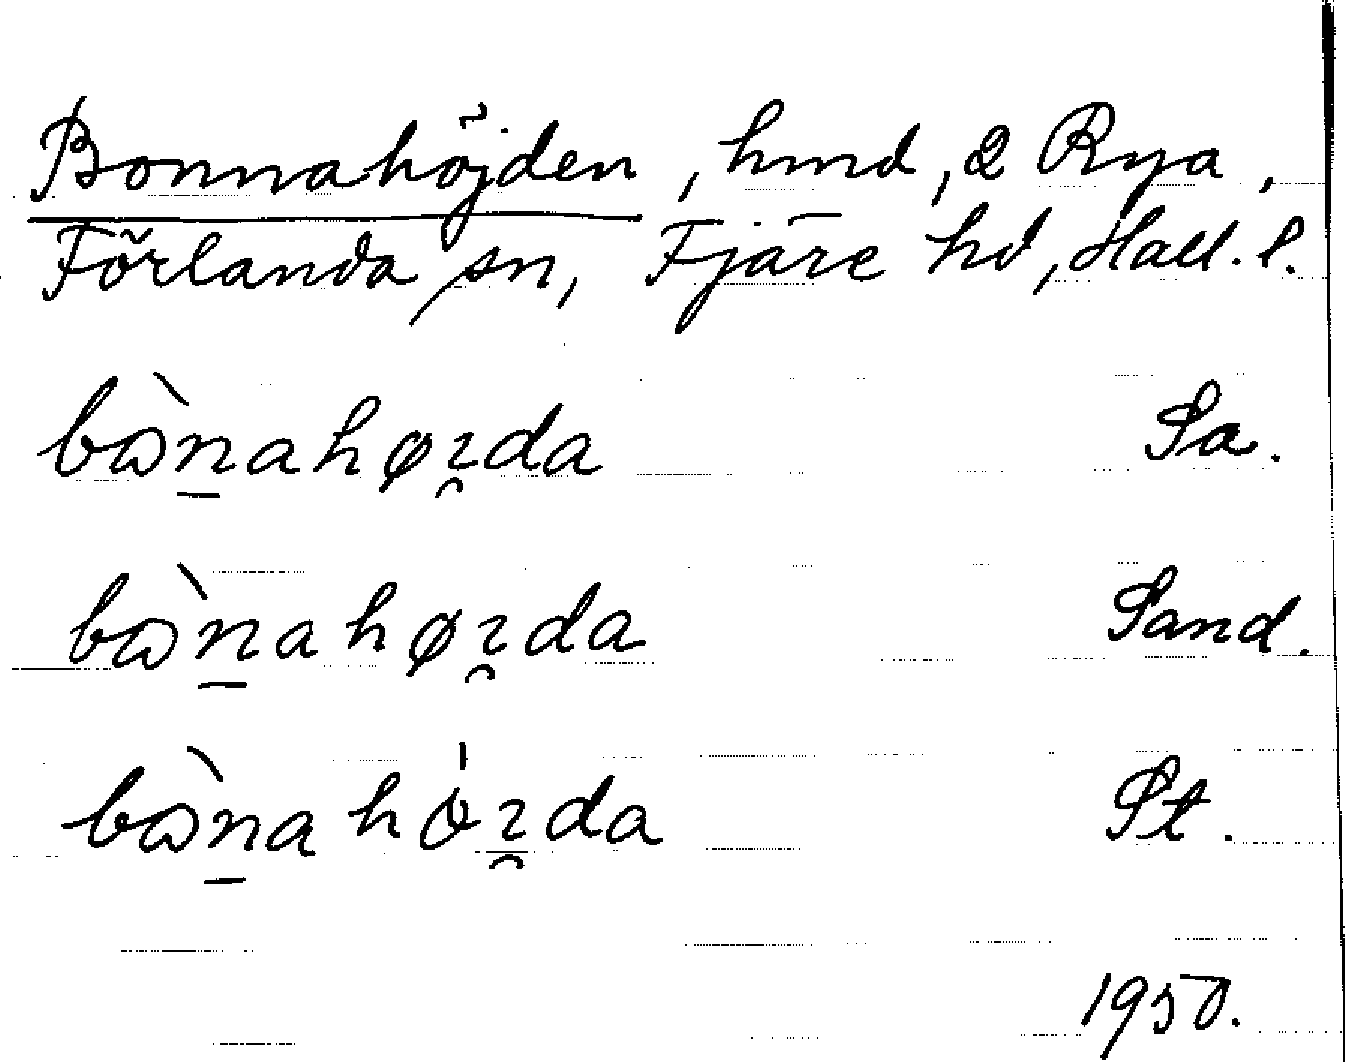 Bonnahöjden, hmd, 2 Rya,
Förlanda sn, Fjäre hd, Hall. l.
bɷ̀n̲ahøı̯da Sa.
bɷ̀n̲ahøı̯da Sand.
bɷ̀n̲ahó̵ı̯da St.
1950.